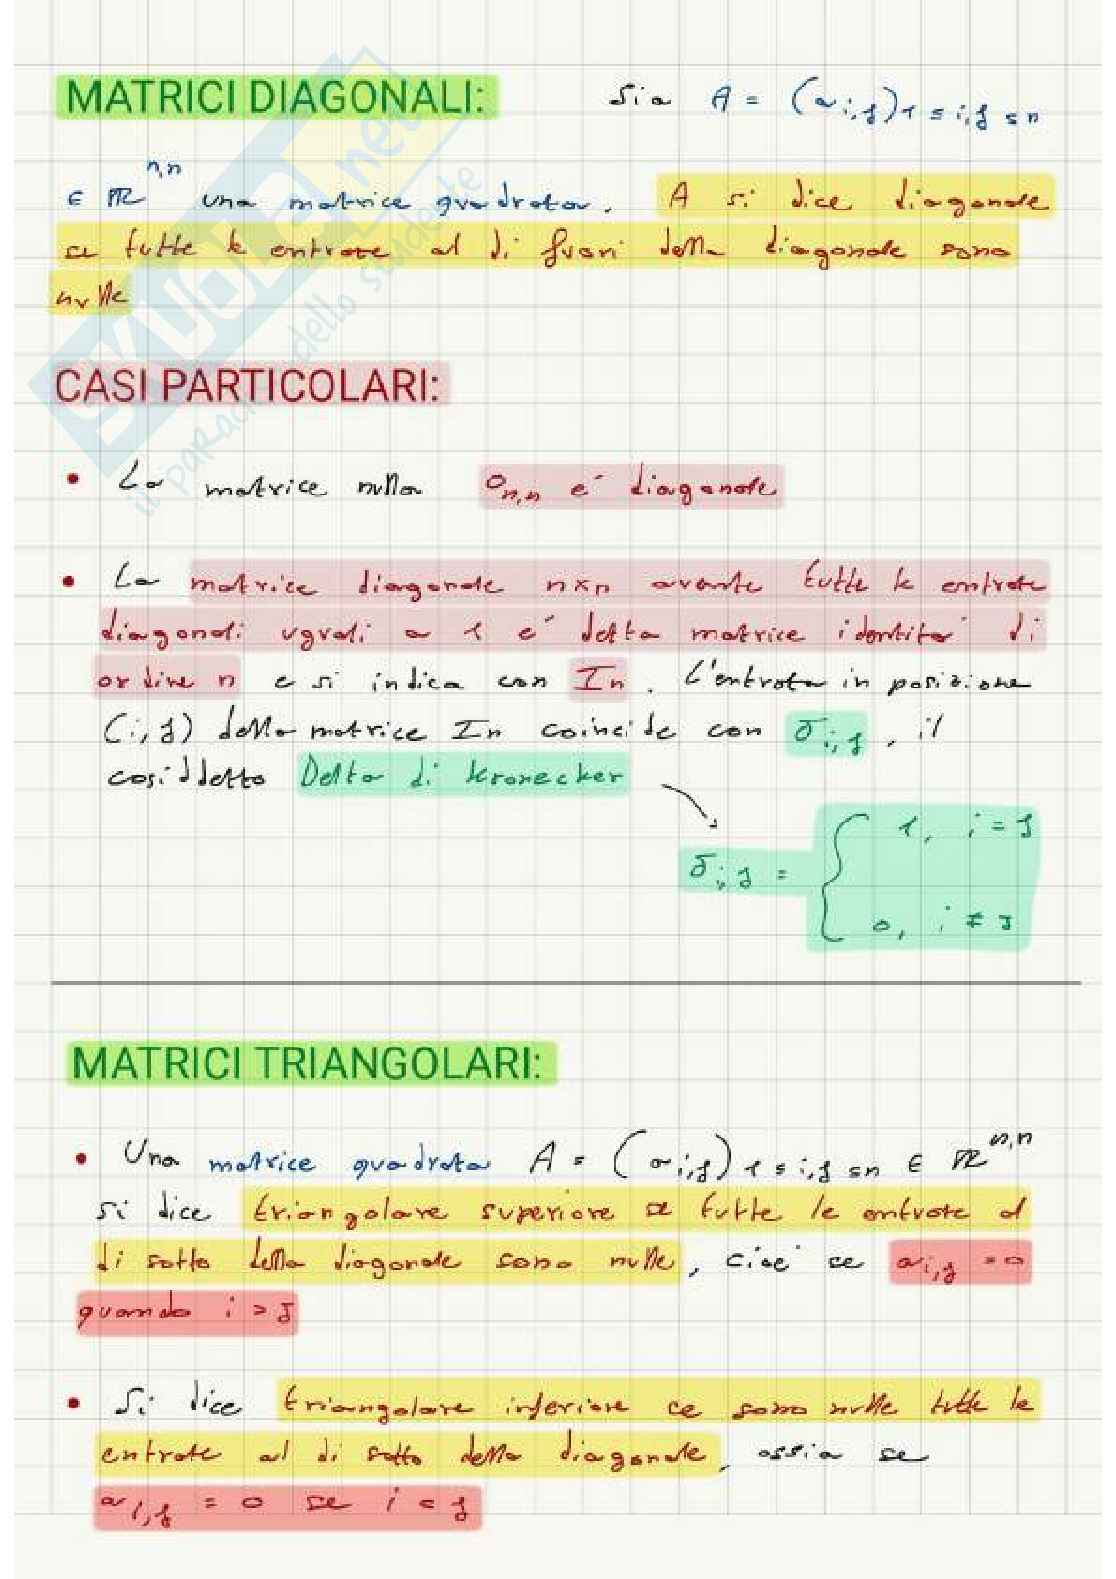 MATRICI DIAGONALI: Sia A = (a i,j) 1 ≤ i,j ≤ n
∈ ℝ^n,n una matrice quadrata. A si dice diagonale
se tutte le entrate al di fuori della diagonale sono
nulle
CASI PARTICOLARI:
• La matrice nulla O n,n e' diagonale
• La matrice diagonale n×n avente tutte le entrate
diagonali uguali a 1 e' detta matrice identita' di
ordine n e si indica con In. L'entrata in posizione
(i,j) della matrice In coincide con δ i,j, il
cosiddetto Delta di Kronecker
δ i,j = { 1, i = j
0, i ≠ j
MATRICI TRIANGOLARI:
• Una matrice quadrata A = (a i,j) 1 ≤ i,j ≤ n ∈ ℝ^n,n
si dice triangolare superiore se tutte le entrate al
di sotto della diagonale sono nulle, cioe' se a i,j = 0
quando i > j
• Si dice triangolare inferiore se sono nulle tutte le
entrate al di sotto della diagonale, ossia se
a i,j = 0 se i < j
SKUOLA.net
il paradiso dello studente